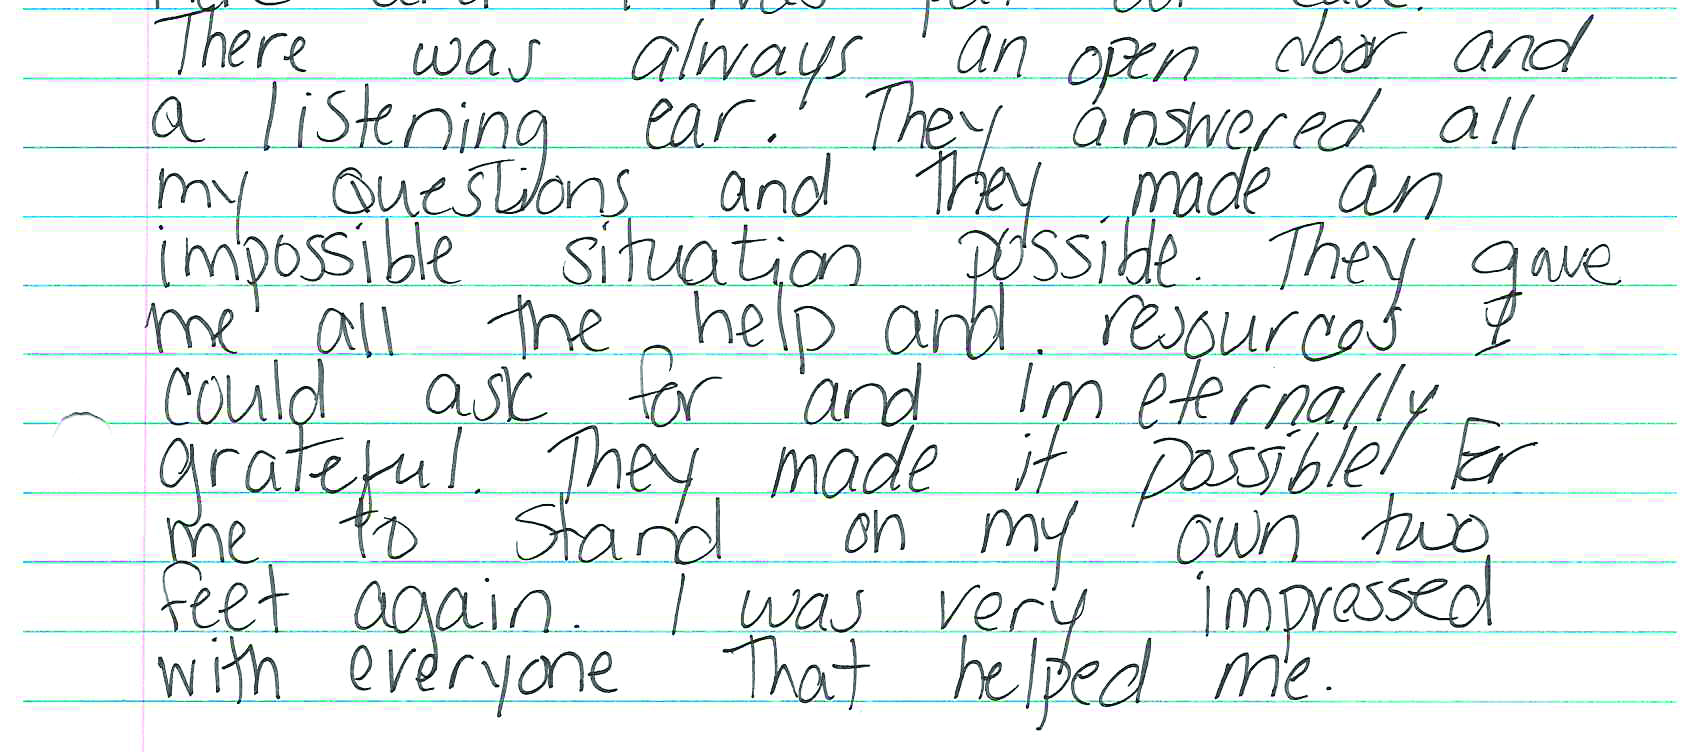 There was always an open door and
a listening ear. They answered all
my questions and they made an
impossible situation possible. They gave
me all the help and resources I
could ask for and Im eternally
grateful. They made it possible for
me to stand on my own two
feet again. I was very impressed
with everyone that helped me.